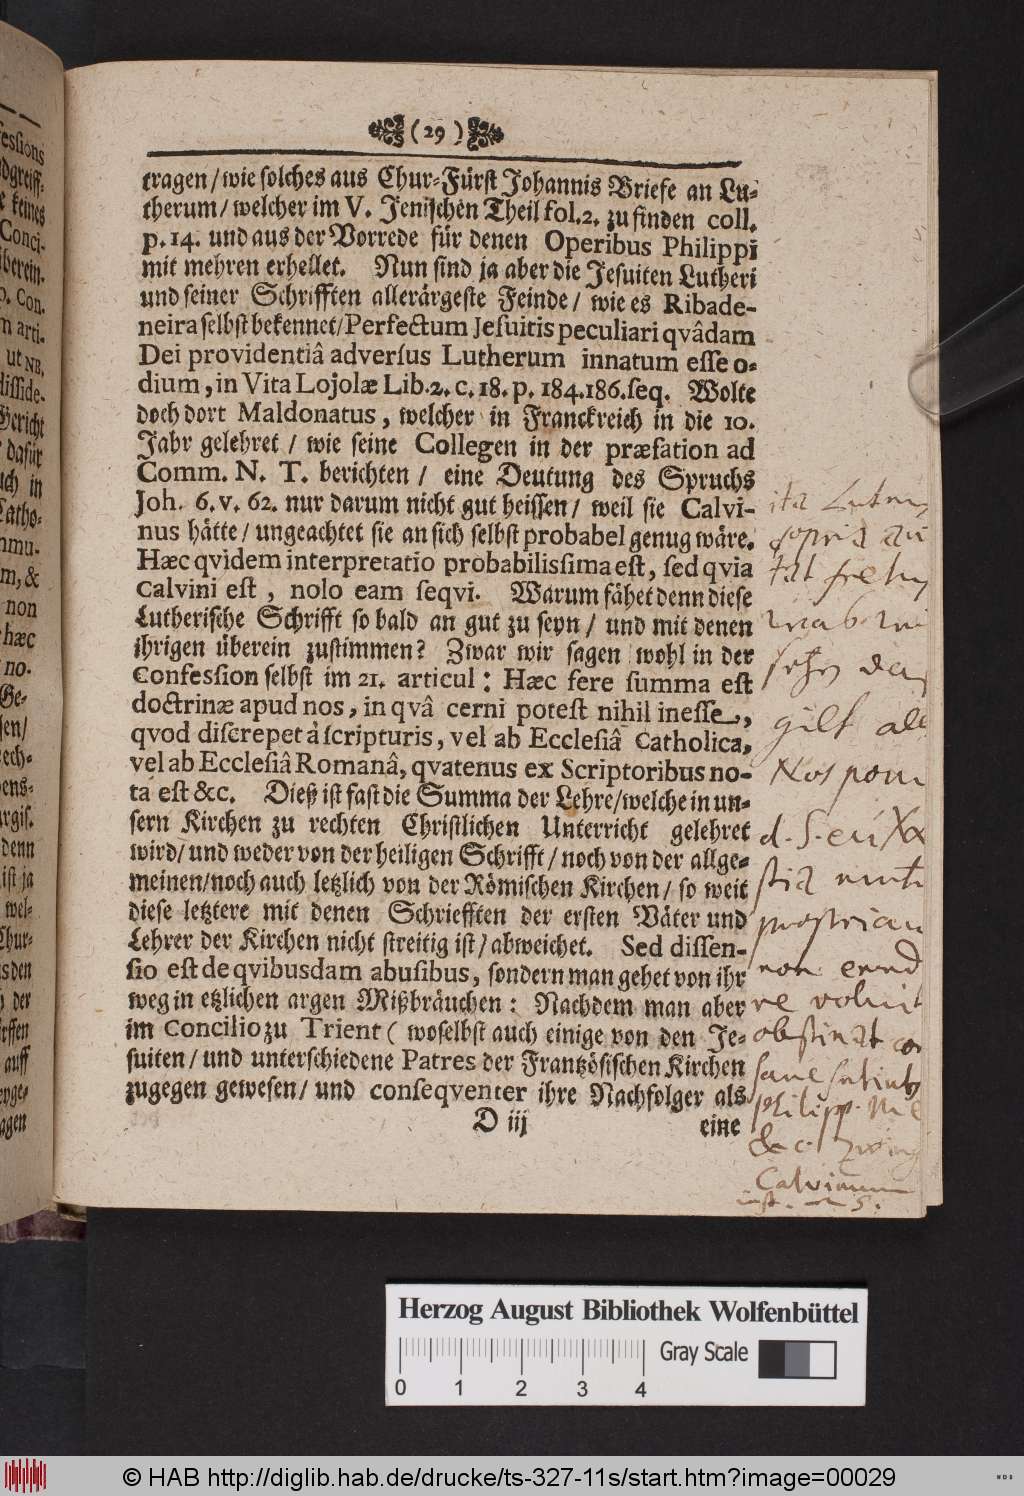 ( 29 )
tragen / wie solches aus Chur-Fürst Johannis Briefe an Lu-
therum / welcher im V. Jenischen Theil fol. 2. zu finden coll.
p. 14. und aus der Vorrede für denen Operibus Philippi
mit mehren erhellet. Nun sind ja aber die Jesuiten Lutheri
und seiner Schrifften allerärgeste Feinde / wie es Ribade-
neira selbst bekennet / Perfectum Jesuitis peculiari qvâdam
Dei providentiâ adversus Lutherum innatum esse o-
dium, in Vita Lojolæ Lib. 2. c. 18. p. 184. 186. seq. Wolte
doch dort Maldonatus, welcher in Franckreich in die 10.
Jahr gelehret / wie seine Collegen in der præfation ad
Comm. N. T. berichten / eine Deutung des Spruchs
Joh. 6. v. 62. nur darum nicht gut heissen / weil sie Calvi-
nus hätte / ungeachtet sie an sich selbst probabel genug wäre.
Hæc qvidem interpretatio probabilissima est, sed qvia
Calvini est, nolo eam seqvi. Warum fähet denn diese
Lutherische Schrifft so bald an gut zu seyn / und mit denen
ihrigen überein zustimmen? Zwar wir sagen wohl in der
Confession selbst im 21. articul: Hæc fere summa est
doctrinæ apud nos, in qvâ cerni potest nihil inesse,
qvod discrepet à scripturis, vel ab Ecclesiâ Catholica,
vel ab Ecclesiâ Romanâ, qvatenus ex Scriptoribus no-
ta est &c. Dieß ist fast die Summa der Lehre / welche in un-
sern Kirchen zu rechten Christlichen Unterricht gelehret
wird / und weder von der heiligen Schrifft / noch von der allge-
meinen / noch auch letzlich von der Römischen Kirchen / so weit
diese letztere mit denen Schriefften der ersten Väter und
Lehrer der Kirchen nicht streitig ist / abweichet. Sed dissen-
sio est de qvibusdam abusibus, sondern man gehet von ihr
weg in etzlichen argen Mißbräuchen: Nachdem man aber
im Concilio zu Trient ( woselbst auch einige von den Je-
suiten / und unterschiedene Patres der Frantzösischen Kirchen
zugegen gewesen / und conseqventer ihre Nachfolger als
D iij eine
ita
gilt
non
Calvinum
Herzog August Bibliothek Wolfenbüttel
Gray Scale
0 1 2 3 4
© HAB http://diglib.hab.de/drucke/ts-327-11s/start.htm?image=00029